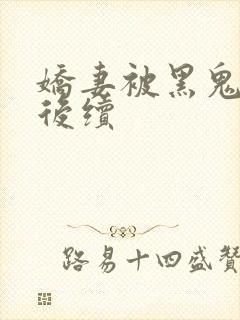 嬌妻被黑鬼
後續
路易十四盛贊